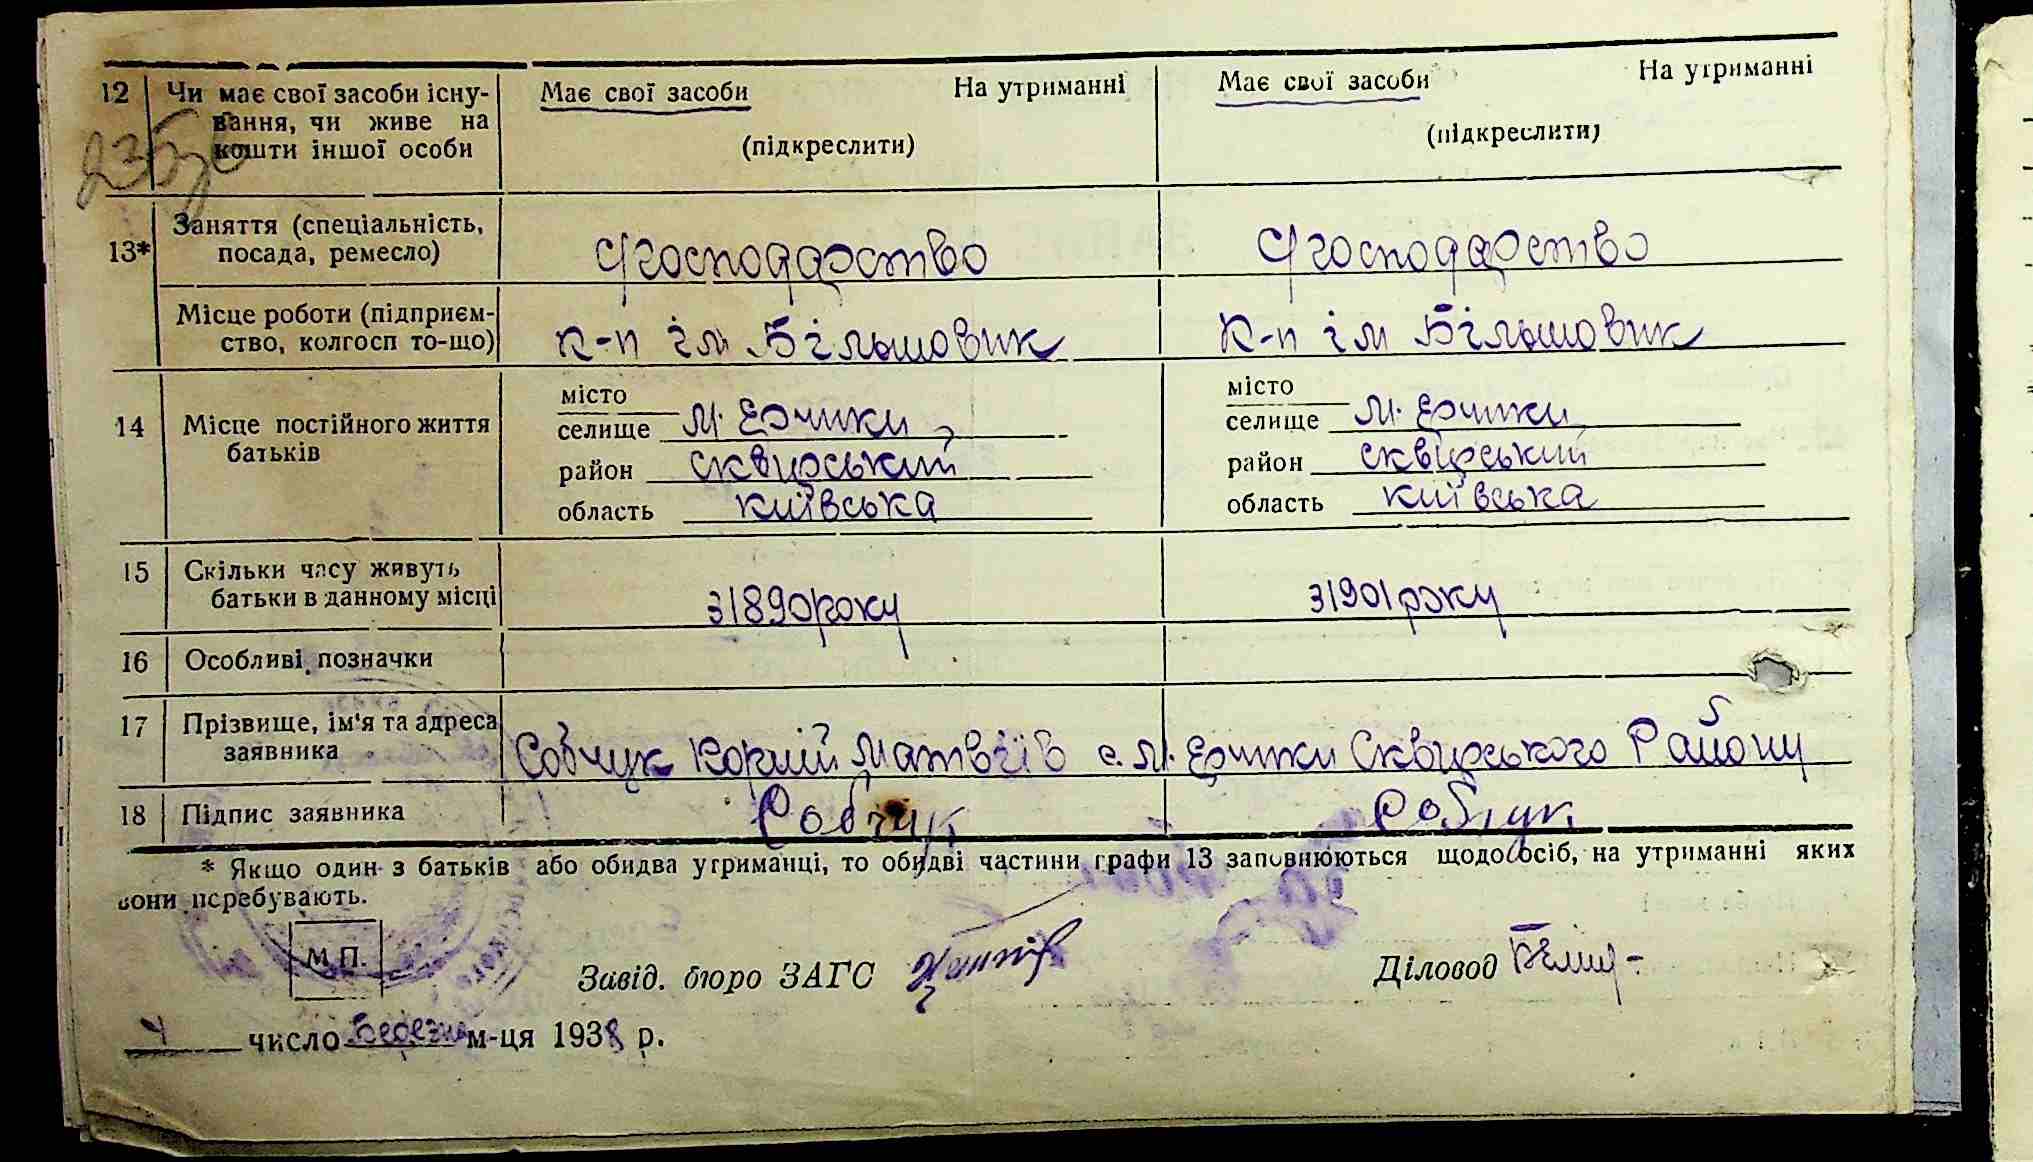 12 Чи має свої засоби існу- Має свої засоби На утриманні Має свої засоби На утриманні
вання, чи живе на
кошти іншої особи (підкреслити) (підкреслити)
13* Заняття (спеціальність,
посада, ремесло) с/господарство с/господарство
Місце роботи (підприєм-
ство, колгосп то-що) к-п ім Більшовик к-п ім Більшовик
місто місто
14 Місце постійного життя селище м. Єрчики, селище м. Єрчики
батьків район сквирський район сквирський
область київська область київська
15 Скільки часу живуть
батьки в данному місці з 1890 року з 1901 року
16 Особливі позначки
17 Прізвище, ім'я та адреса
заявника Собчук Корній Матвіїв с. М. Єрчики Сквирського Району
18 Підпис заявника Собчук Собчук
* Якщо один з батьків або обидва утриманці, то обидві частини графи 13 заповнюються щодо осіб, на утриманні яких
вони перебувають.
М.П.
Завід. бюро ЗАГС Діловод
4 число Березня м-ця 1938 р.